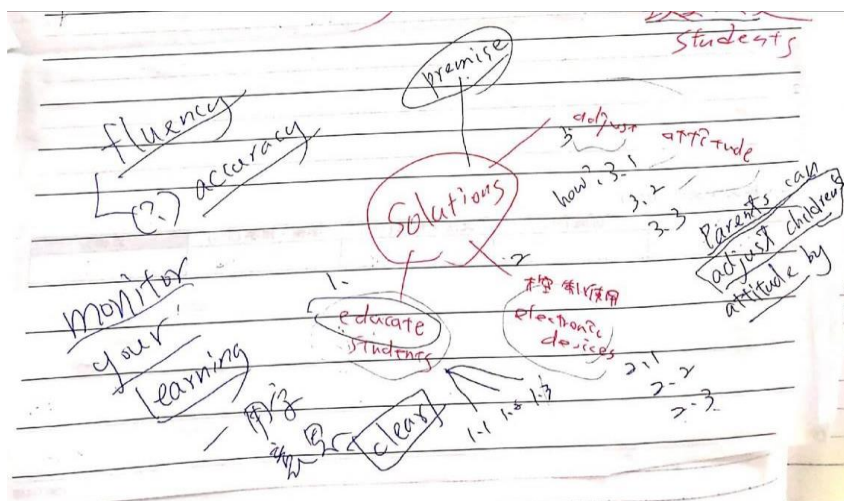 students
premise
fluency
(?) accuracy
Solutions
3.
adjust
attitude
how? 3.1
3.2
3.3
Parents can
adjust children
attitude by
monitor
your
learning
1.
educate
students
2
控制使用
electronic
devices
1.1 1.2 1.3
2.1
2.2
2.3
用字
clear